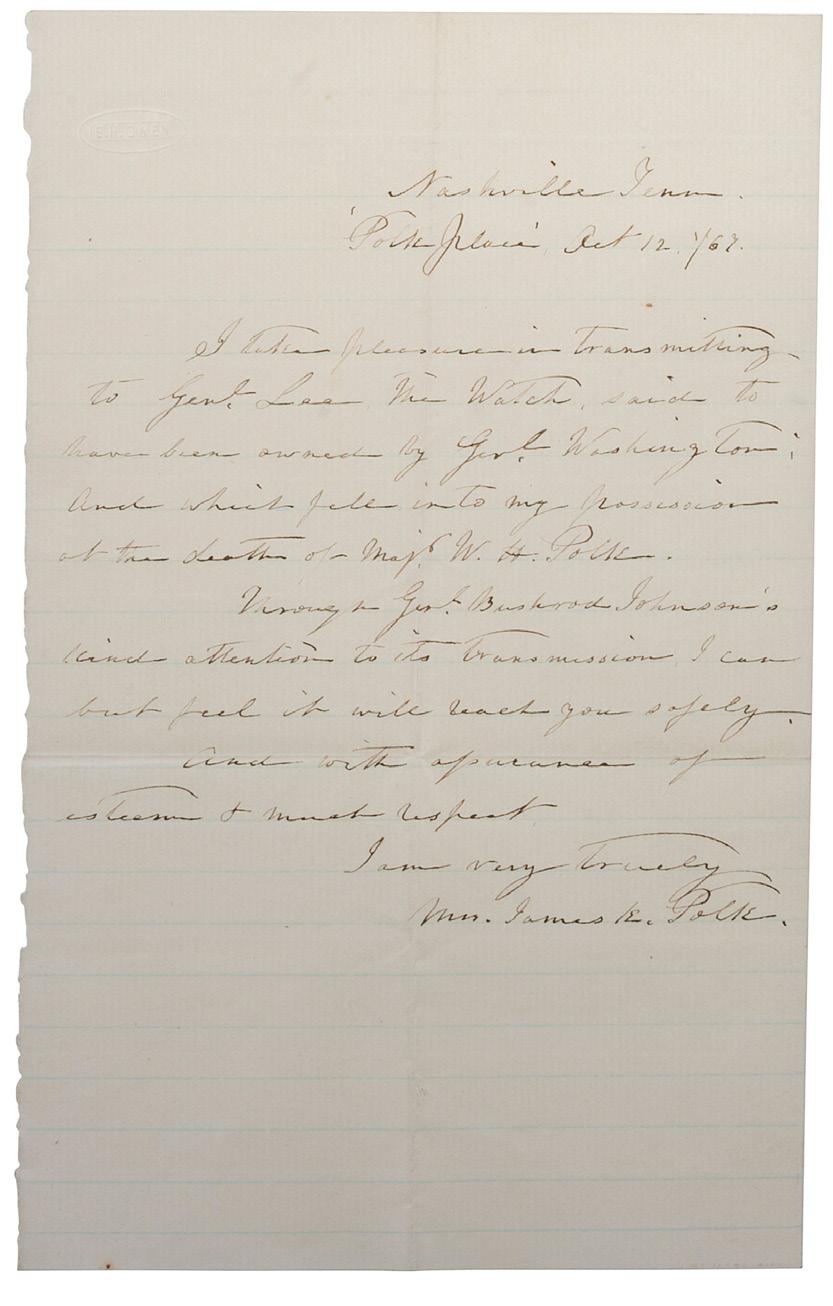 Nashville Tenn.
'Polk place', Oct 12, '/67.
I take pleasure in transmitting
to Genl. Lee the Watch, said to
have been owned by Genl. Washington;
And which fell into my possession
at the death of Majr. W. H. Polk.
Through Genl. Bushrod Johnson's
kind attention to its transmission, I can
but feel it will reach you safely.
And with assurance of
esteem & much respect
I am very truely
Mrs. James K. Polk.